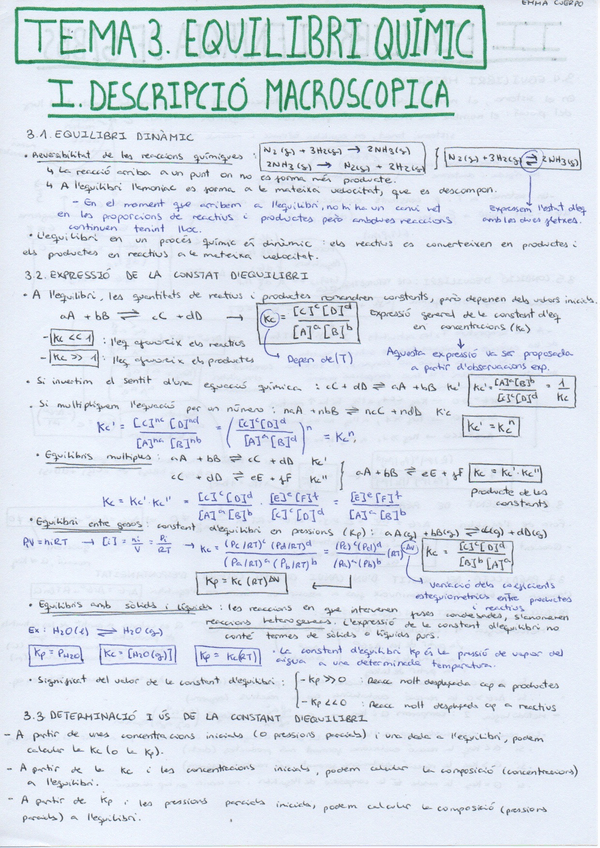 EMMA CUERPO
TEMA 3. EQUILIBRI QUÍMIC
I. DESCRIPCIÓ MACROSCOPICA
3.1. EQUILIBRI DINÀMIC
• Reversibilitat de les reaccions químiques : N₂(g) + 3H₂(g) → 2NH₃(g)
2NH₃(g) → N₂(g) + 3H₂(g)
N₂(g) + 3H₂(g) ⇌ 2NH₃(g)
↳ La reacció arriba a un punt on no es forma més producte.
↳ A l'equilibri l'amoniac es forma a la mateixa velocitat, que es descompon.
- En el moment que arribem a l'equilibri, no hi ha un canvi net
en les proporcions de reactius i productes però ambdues reaccions
continuen tenint lloc.
Expressem l'estat d'eq
amb les dues fletxes.
• L'equilibri en un procés químic és dinàmic : els reactius es converteixen en productes i
els productes en reactius a la mateixa velocitat.
3.2. EXPRESSIÓ DE LA CONSTAT D'EQUILIBRI
• A l'equilibri, les quantitats de reactius i productes romandren constants, però depenen dels valors inicials.
aA + bB ⇌ cC + dD → Kc = [C]ᶜ[D]ᵈ / [A]ᵃ[B]ᵇ
Expressió general de la constant d'eq
en concentracions (Kc)
- Kc << 1 : l'eq afavoreix els reactius
- Kc >> 1 : l'eq afavoreix els productes
Depen de (T)
Aquesta expressió va ser proposada
a partir d'observacions exp.
• Si invertim el sentit d'una equació química : cC + dD ⇌ aA + bB Kc' Kc' = [A]ᵃ[B]ᵇ / [C]ᶜ[D]ᵈ = 1 / Kc
• Si multipliquem l'equació per un número : naA + nbB ⇌ ncC + ndD Kc'
Kc' = [C]ⁿᶜ[D]ⁿᵈ / [A]ⁿᵃ[B]ⁿᵇ = ([C]ᶜ[D]ᵈ / [A]ᵃ[B]ᵇ)ⁿ = Kcⁿ
Kc' = Kcⁿ
• Equilibris multiples : aA + bB ⇌ cC + dD Kc'
cC + dD ⇌ eE + fF Kc''
aA + bB ⇌ eE + fF Kc = Kc' · Kc''
Producte de les
constants
Kc = Kc' · Kc'' = [C]ᶜ[D]ᵈ / [A]ᵃ[B]ᵇ · [E]ᵉ[F]ᶠ / [C]ᶜ[D]ᵈ = [E]ᵉ[F]ᶠ / [A]ᵃ[B]ᵇ
• Equilibri entre gasos : constant d'equilibri en pressions (Kp) : aA(g) + bB(g) ⇌ cC(g) + dD(g)
PV = niRT → [i] = ni / V = Pi / RT → Kc = (Pc/RT)ᶜ (Pd/RT)ᵈ / (Pa/RT)ᵃ (Pb/RT)ᵇ = (Pc)ᶜ(Pd)ᵈ / (Pa)ᵃ(Pb)ᵇ (RT)^Δν
Kc = [C]ᶜ[D]ᵈ / [B]ᵇ[A]ᵃ
Kp = Kc (RT)^Δν
Variació dels coeficients
estequiomètrics entre productes
i reactius
• Equilibris amb sòlids i líquids : les reaccions en que intervenen fases condensades, s'anomenen
reaccions heterogenees. L'expressió de la constant d'equilibri no
conté termes de sòlids o líquids purs.
Ex : H₂O(l) ⇌ H₂O(g)
Kp = PH₂O Kc = [H₂O(g)] Kp = Kc(RT)
• La constant d'equilibri Kp és la pressió de vapor del
aigua a una determinada temperatura.
• Significat del valor de la constant d'equilibri : - Kp >> 0 : Reacc molt desplaçada cap a productes
- Kp << 0 : Reacc molt desplaçada cap a reactius
3.3 DETERMINACIÓ I ÚS DE LA CONSTANT D'EQUILIBRI
- A partir de unes concentracions inicials (o pressions parcials) i una dada a l'equilibri, podem
calcular la Kc (o la Kp).
- A partir de la Kc i les concentracions inicials, podem calcular la composició (concentracions)
a l'equilibri.
- A partir de Kp i les pressions parcials inicials, podem calcular la composició (pressions
parcials) a l'equilibri.